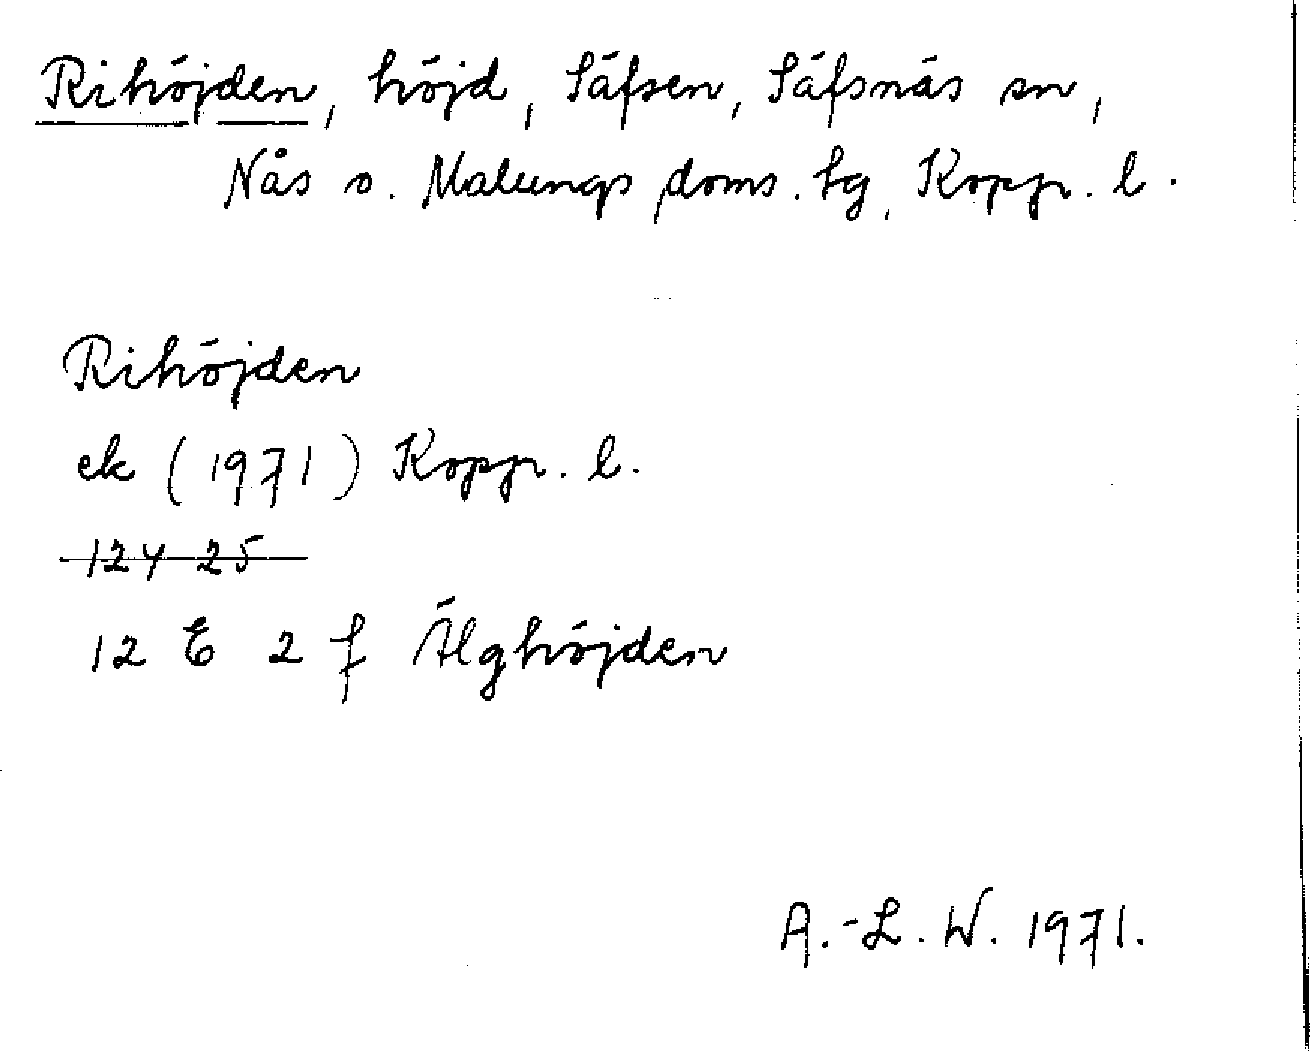 Rihöjden, höjd, Säfsen, Säfsnäs sn,
Nås o. Malungs doms. tg, Kopp. l.
Rihöjden
ek (1971) Kopp. l.
124 25
12 E 2 f Älghöjden
A.-L. W. 1971.